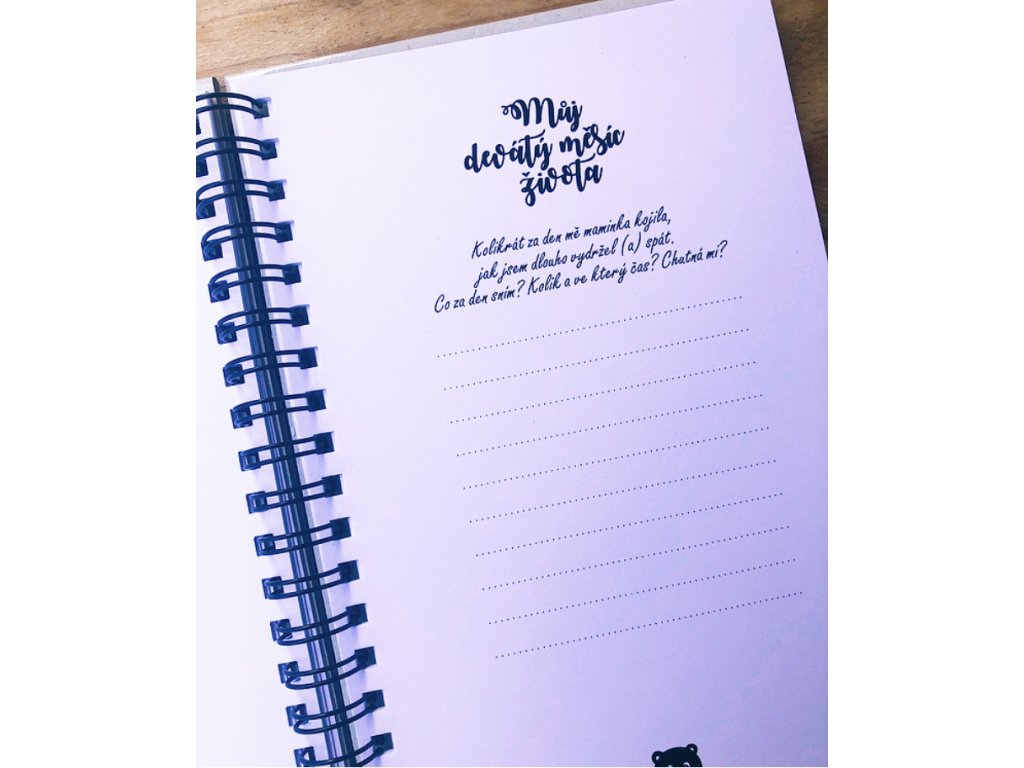 Můj
devátý měsíc
života
Kolikrát za den mě maminka kojila,
jak jsem dlouho vydržel (a) spát.
Co za den sním? Kolik a ve který čas? Chutná mi?